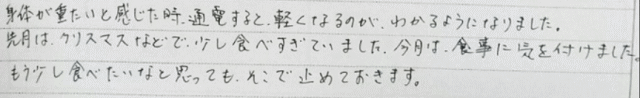 身体が重たいと感じた時、通電すると、軽くなるのが、わかるようになりました。
先月は、クリスマスなどで、少し食べすぎていました、今月は、食事に気を付けました。
もう少し食べたいなと思っても、そこで止めておきます。